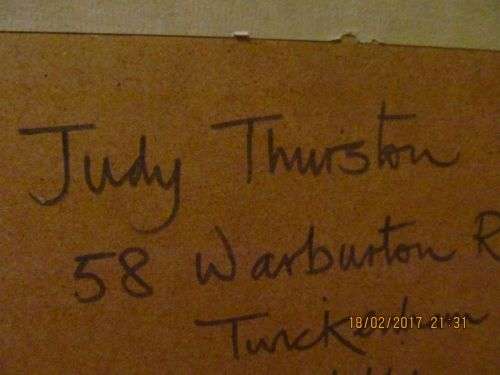 Judy Thurston
58 Warburton R
Twickenham
18/02/2017 21:31